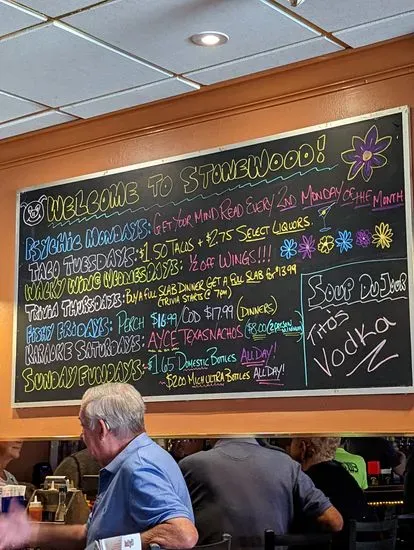 WELCOME TO STONEWOOD!
PSYCHIC MONDAYS: GET YOUR MIND READ EVERY 2ND MONDAY OF THE MONTH
TACO TUESDAYS: $1.50 TACOS + $2.75 SELECT LIQUORS
WACKY WING WEDNESDAYS: 1/2 OFF WINGS!!!
TRIVIA THURSDAYS: BUY A FULL SLAB DINNER GET A FULL SLAB for $13.99
(TRIVIA STARTS @ 7pm)
FISHY FRIDAYS: PERCH $16.99/COD $17.99 (DINNERS)
KARAOKE SATURDAYS: AYCE TEXAS NACHOS ($3.00/2 PERSON MINIMUM)
SUNDAY FUNDAYS: ~$1.65 DOMESTIC BOTTLES ALL DAY!
~$2.00 MICH ULTRA BOTTLES ALL DAY!
SOUP DU JOUR
TITO'S
Vodka